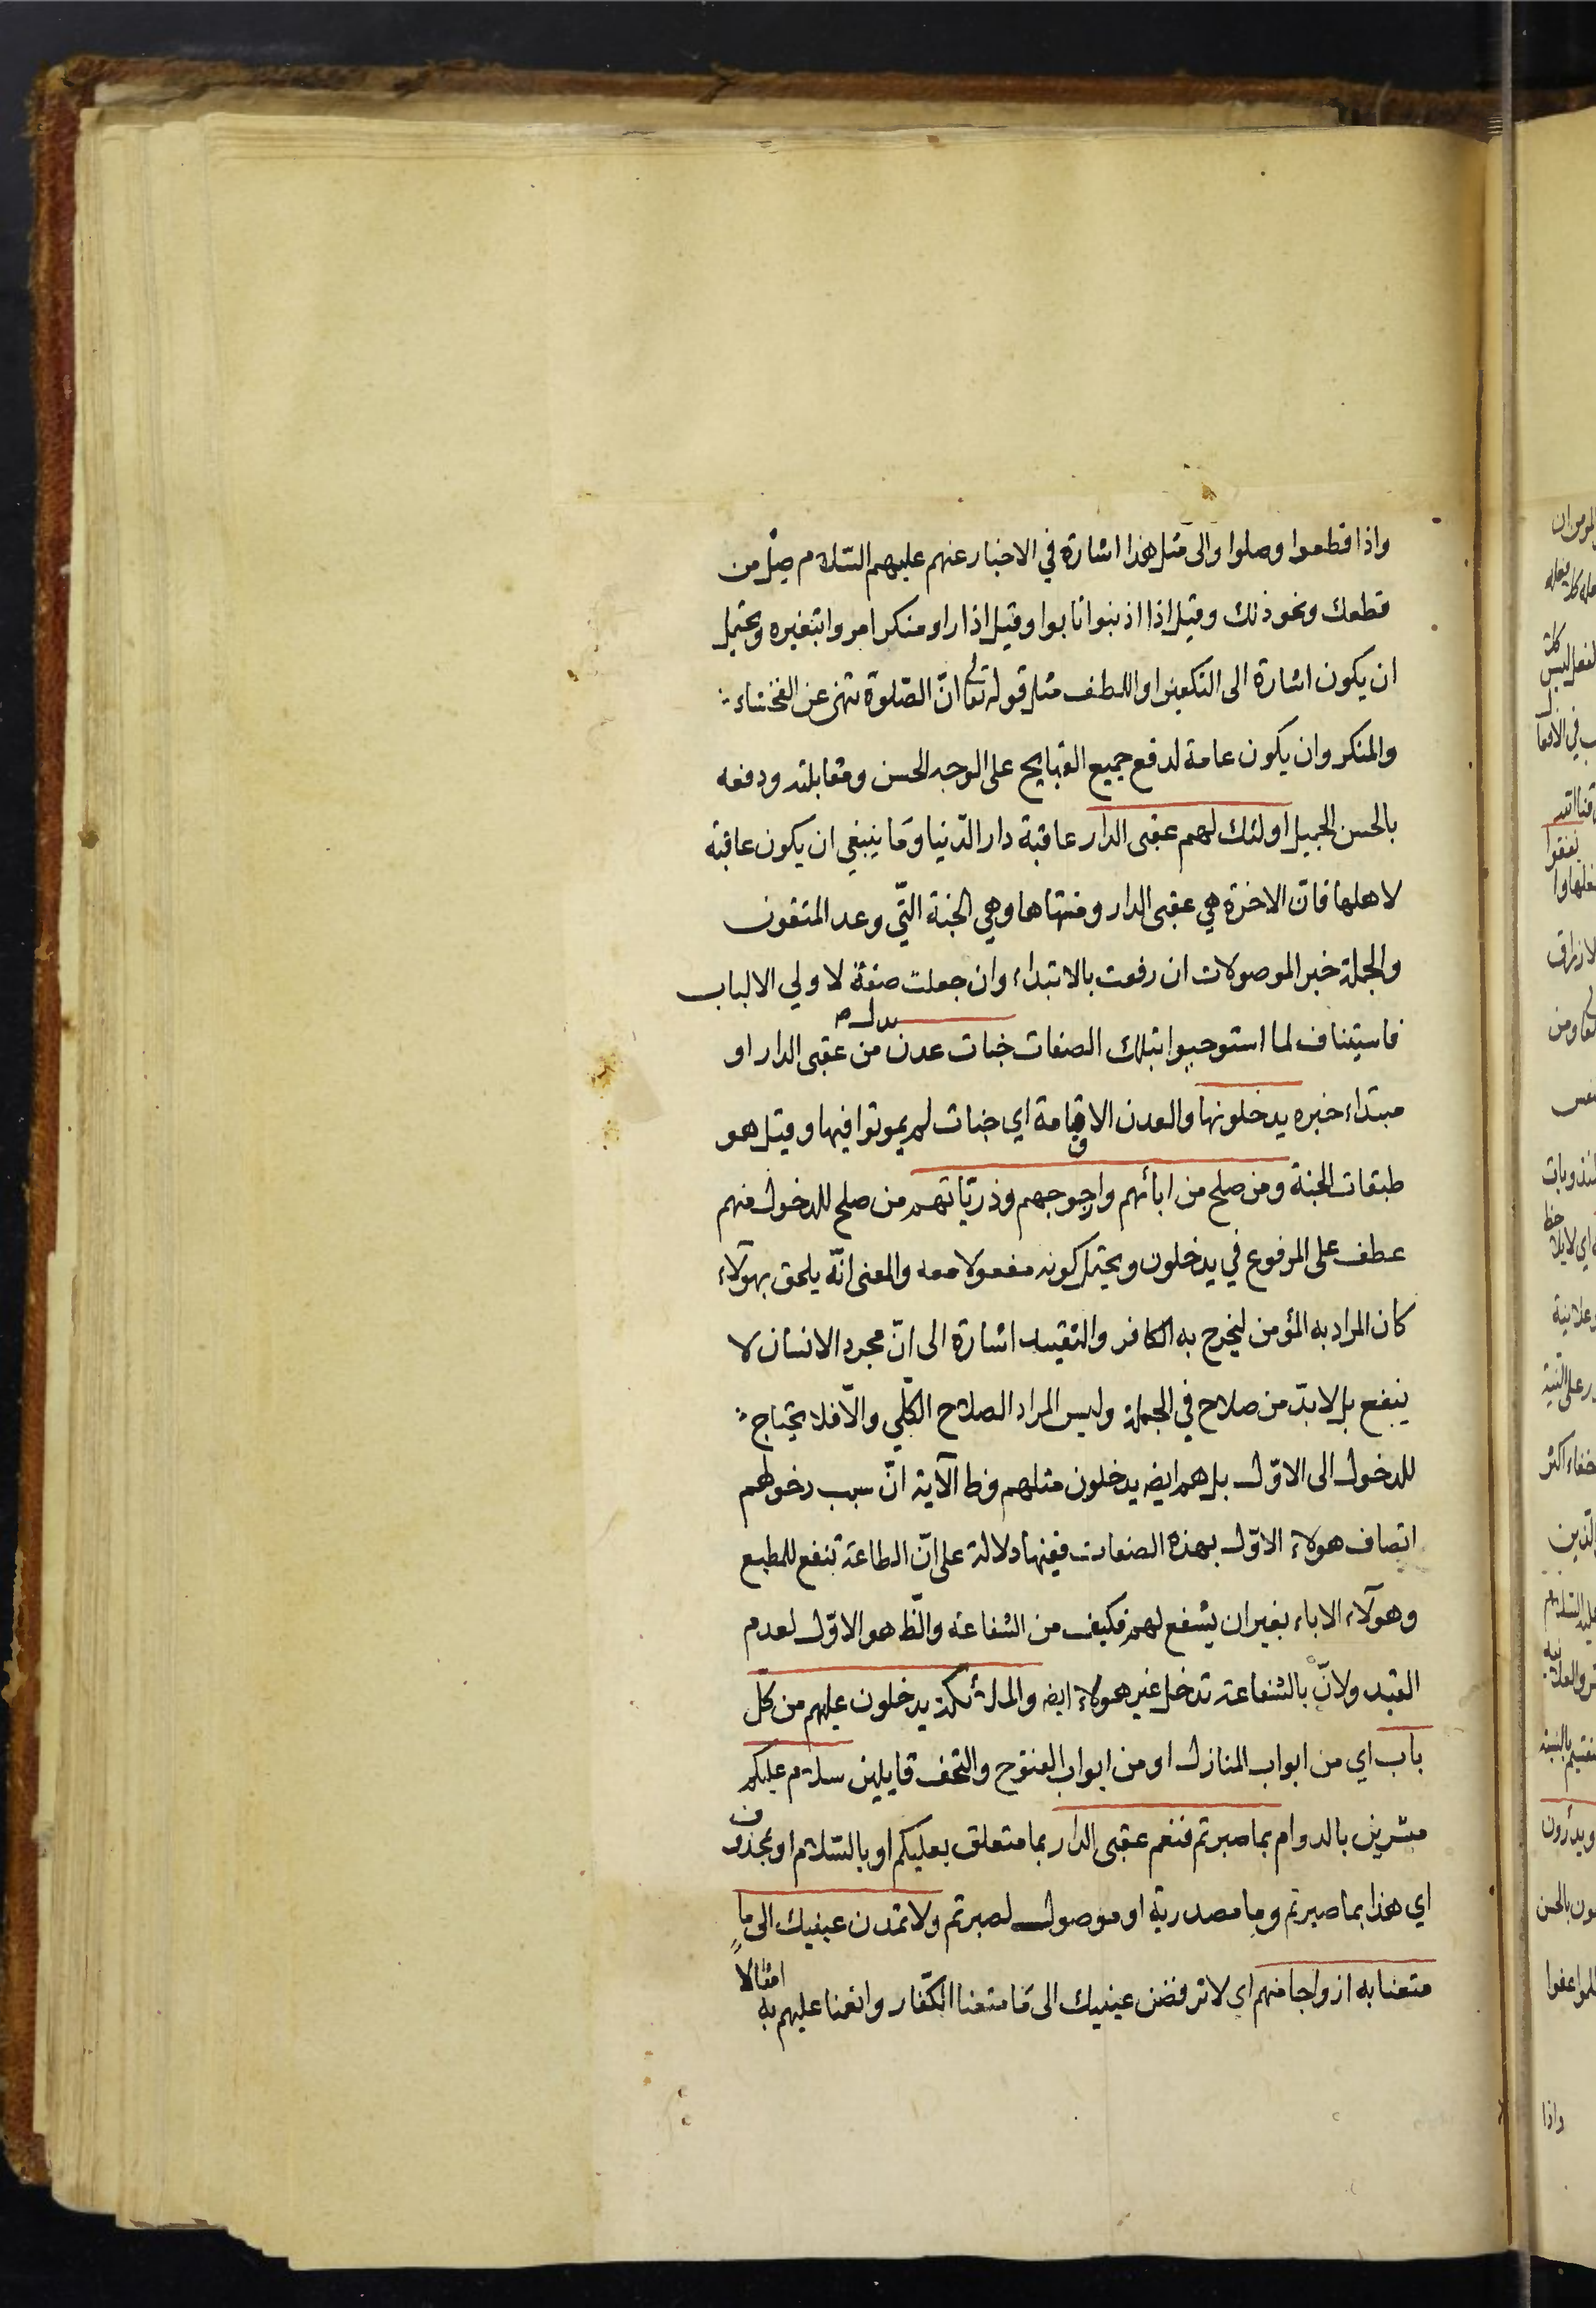 واذا قطعوا وصلوا والى مثل هذا اشارة في الاخبار عنهم عليهم السلام صل من
قطعك ونحو ذلك وقيل اذا اذنبوا تابوا وقيل اذا راو منكرا امروا بتغيره ويحتمل
ان يكون اشارة الى التكفير او اللطف مثل قوله تعالى انّ الصّلوة تنهى عن الفحشاء
والمنكر وان يكون عامة لدفع جميع القبايح على الوجه الحسن ومقابلته ودفعه
بالحسن الجميل اولئك لهم عقبى الدار عاقبة دار الدّنيا وما ينبغي ان يكون عاقبة
لاهلها فانّ الاخرة هي عقبى الدار ومنتهاها وهي الجنة الّتي وعد المتقون
والجملة خبر الموصولات ان رفعت بالابتداء وان جعلت صفة لاولي الالباب
فاستيناف لما استوجبوا بتلك الصفات جنات عدن بدل من عقبى الدار او
مبتداء خبره يدخلونها والعدن الاقامة اي جنات لم يموتوا فيها وقيل هو
طبقات الجنة ومن صلح من ابائهم وازوجهم وذرّياتهم من صلح للدخول منهم
عطف على المرفوع في يدخلون ويحتمل كونه مفعولا معه والمعنى انّه يلحق بهولاء
كان المراد به المؤمن ليخرج به الكافر والتقييد اشارة الى انّ مجرد الانسان لا
ينفع بل لابدّ من صلاح في الجملة وليس المراد الصلاح الكلّي والّا فلا يحتاج
للدخول الى الاوّل بل هم ايضه يدخلون مثلهم وظ الآية انّ سبب دخولهم
اتصاف هولاء الاوّل بهذه الصفات ففيها دلالة على انّ الطاعة تنفع للمطيع
وهولاء الاباء بغير ان يشفع لهم فكيف من الشفاعة والظ هو الاوّل لعدم
القيد ولانّ بالشفاعة تدخل غير هولاء ايضه والملائكة يدخلون عليهم من كلّ
باب اي من ابواب المنازل او من ابواب الفتوح والتحف قايلين سلام عليكم
مبشرين بالدوام بما صبرتم فنعم عقبى الدار بما متعلق بعليكم او بالسّلام او بمحذوف
اي هذا بما صبرتم وما مصدرية او موصول لصبرتم ولا تمدن عينيك الى ما
متعنا به ازواجا منهم اي لا ترفضن عينيك الى ما متعنا الكفّار وانعمنا عليهم به امثالا